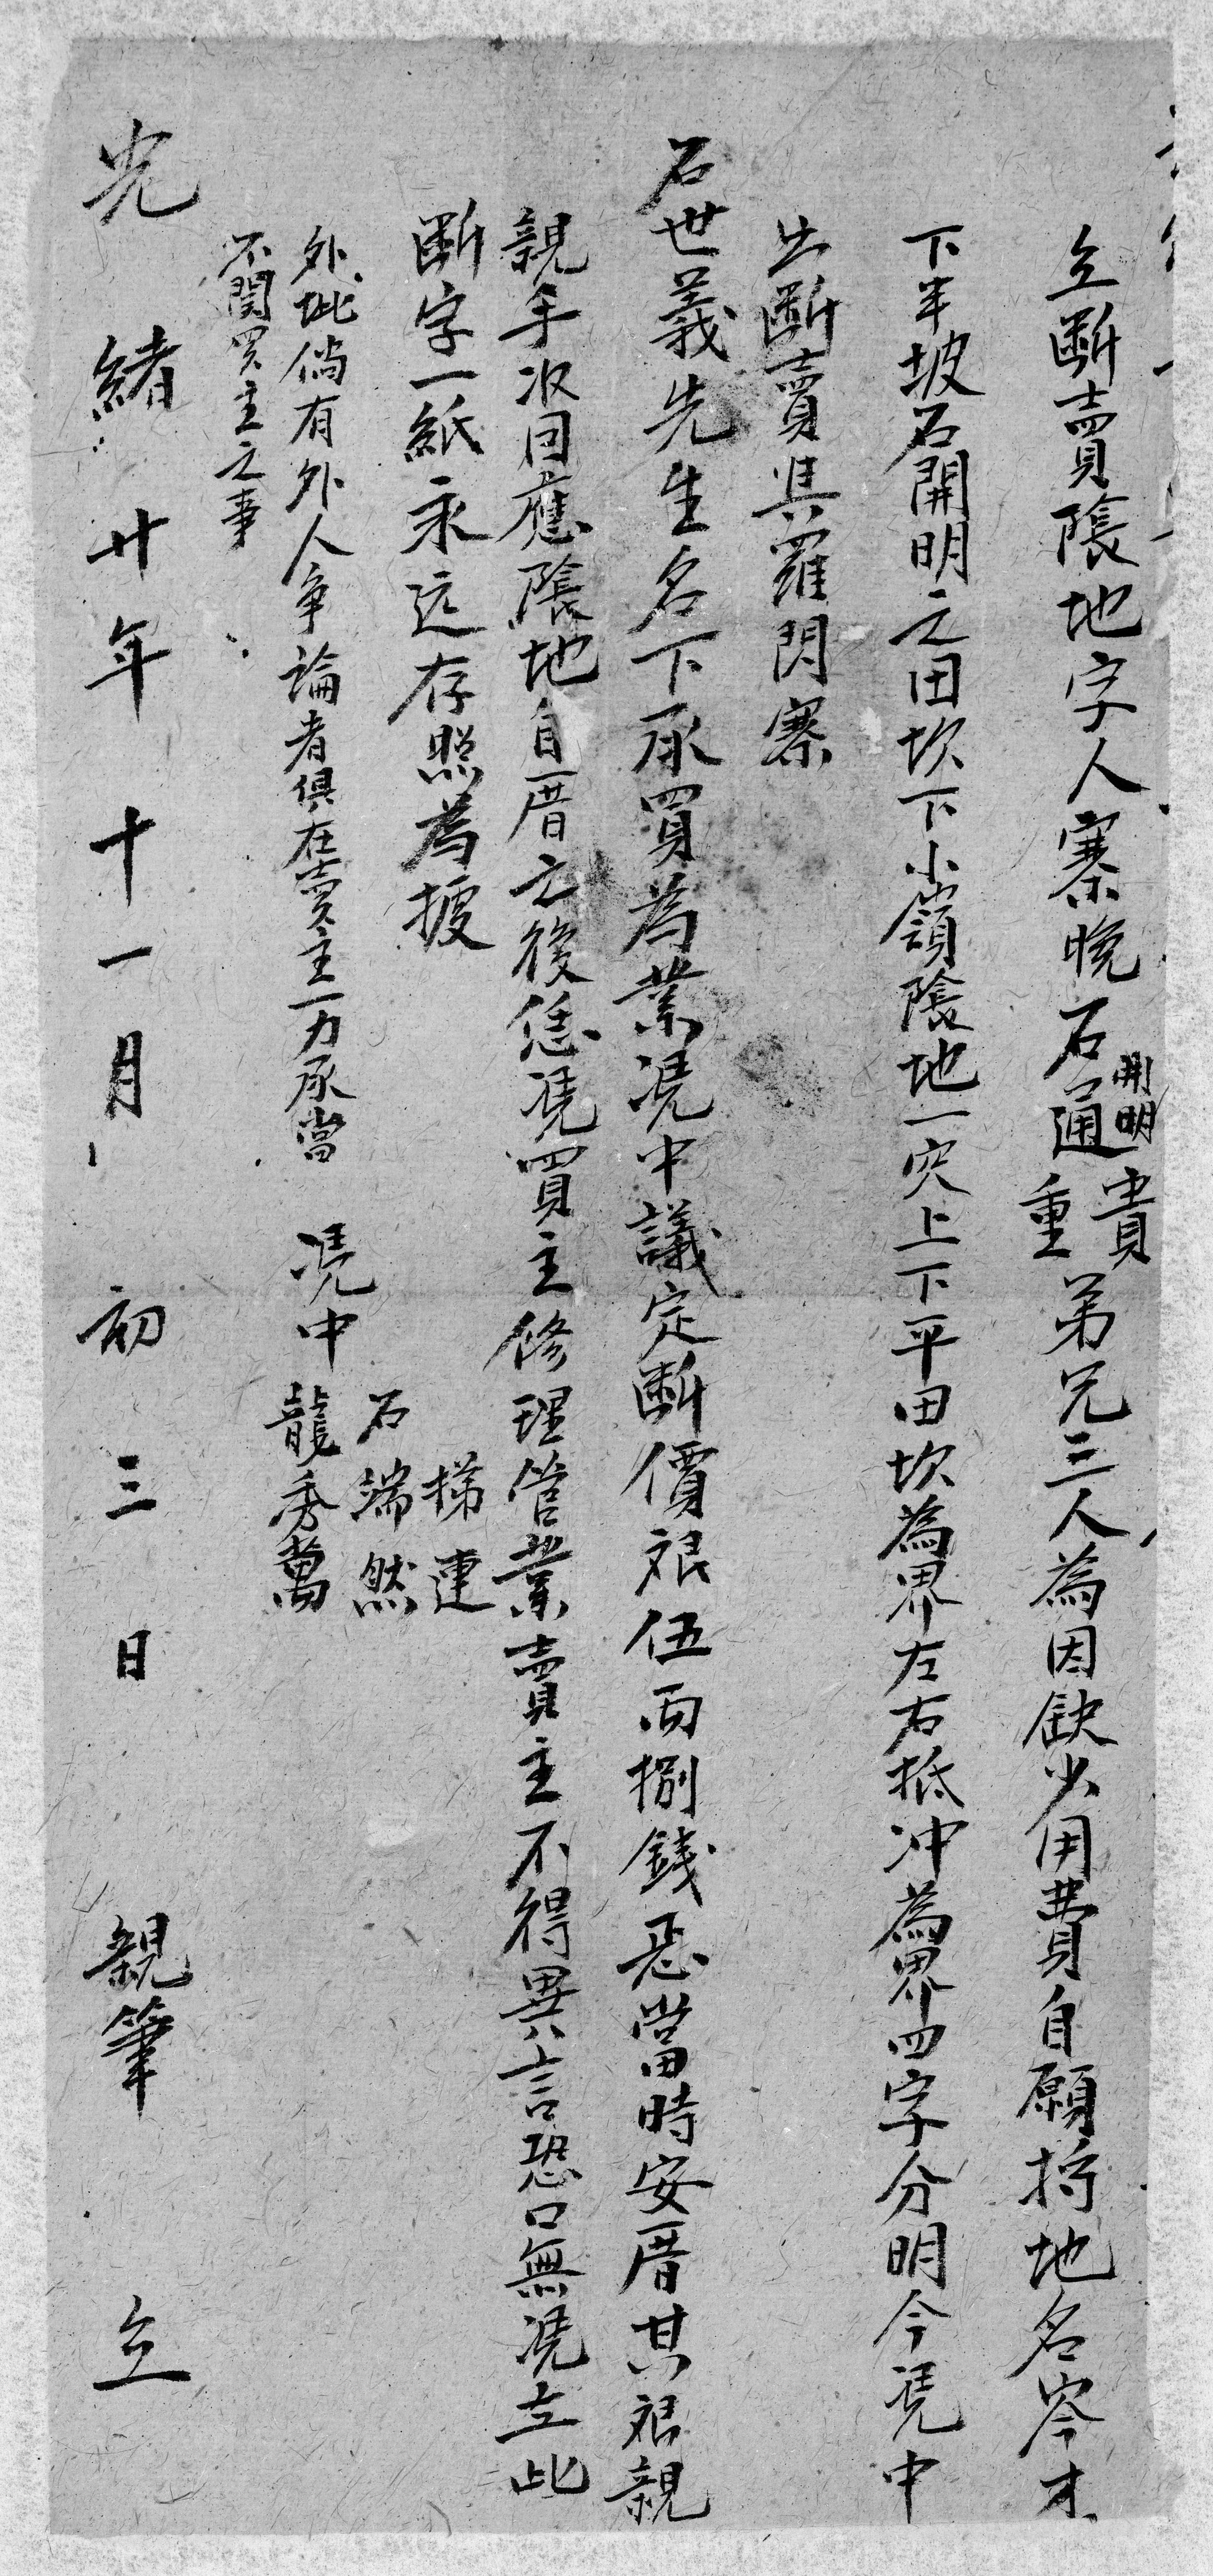 立斷賣陰地字人寨晚石通開明貴重弟兄三人為因缺少用費自願将地名岑才
下半坡石開明之田坎下小嶺陰地一穴上下平田坎為界左右抵冲為界四字分明今凴中
出斷賣與羅閃寨
石世義先生名下承買為業凴中議定斷價艮伍両捌錢㤙當時安厝其艮親
親手收回應陰地自厝之後恁凴買主修理管業賣主不得異言恐口無凴立此
斷字一紙永远存照為㨿
外批倘有外人争論者俱在賣主一力承當
不関買主之事
凴中
梯連
石端然
龍秀萬
光緒廿年十一月初三日 親筆 立